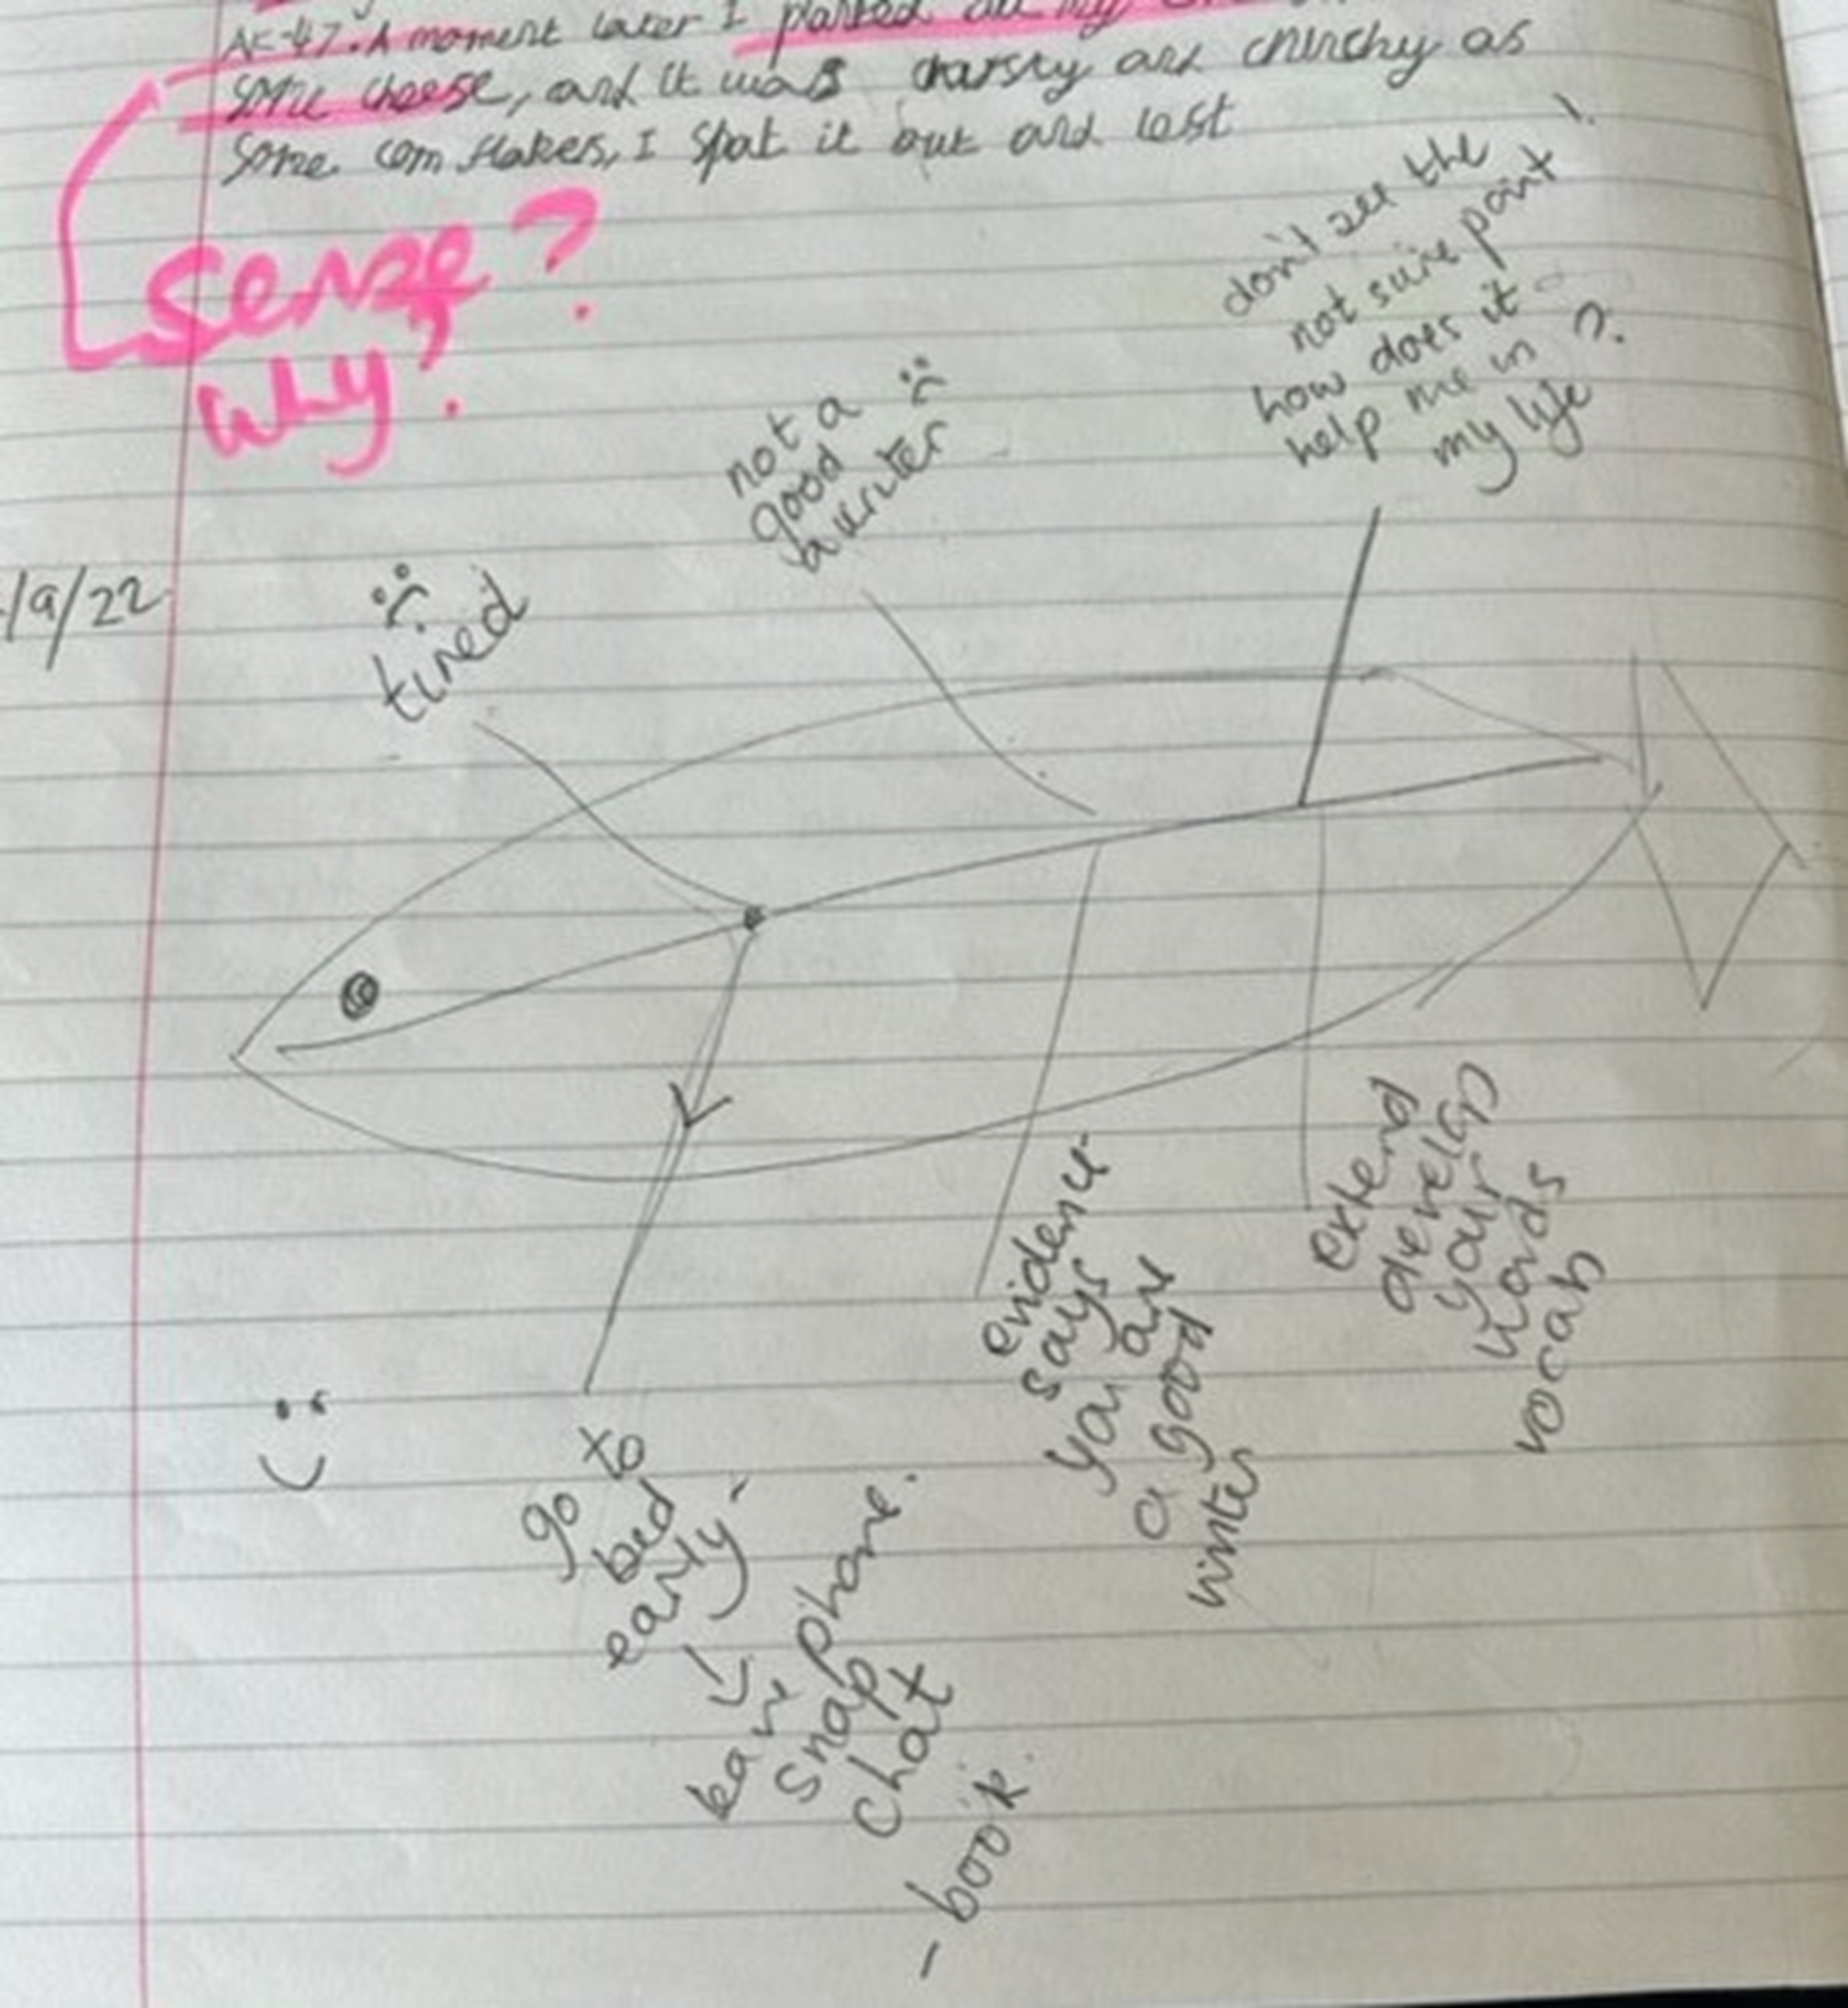 AK-47. A moment later I planted all my
some cheese, and it was and chrunchy as
some corn flakes, I spat it out and lost
sense?
why?
/9/22
:(
tired
not a :(
good
a writer
don't see the
not sure point !
how does it
help me in ?
my life
:)
go to
bed
early -
leave phone.
snap
chat
- book.
evidence -
says
you are
a good
writer
extend
develop
your
words
vocab